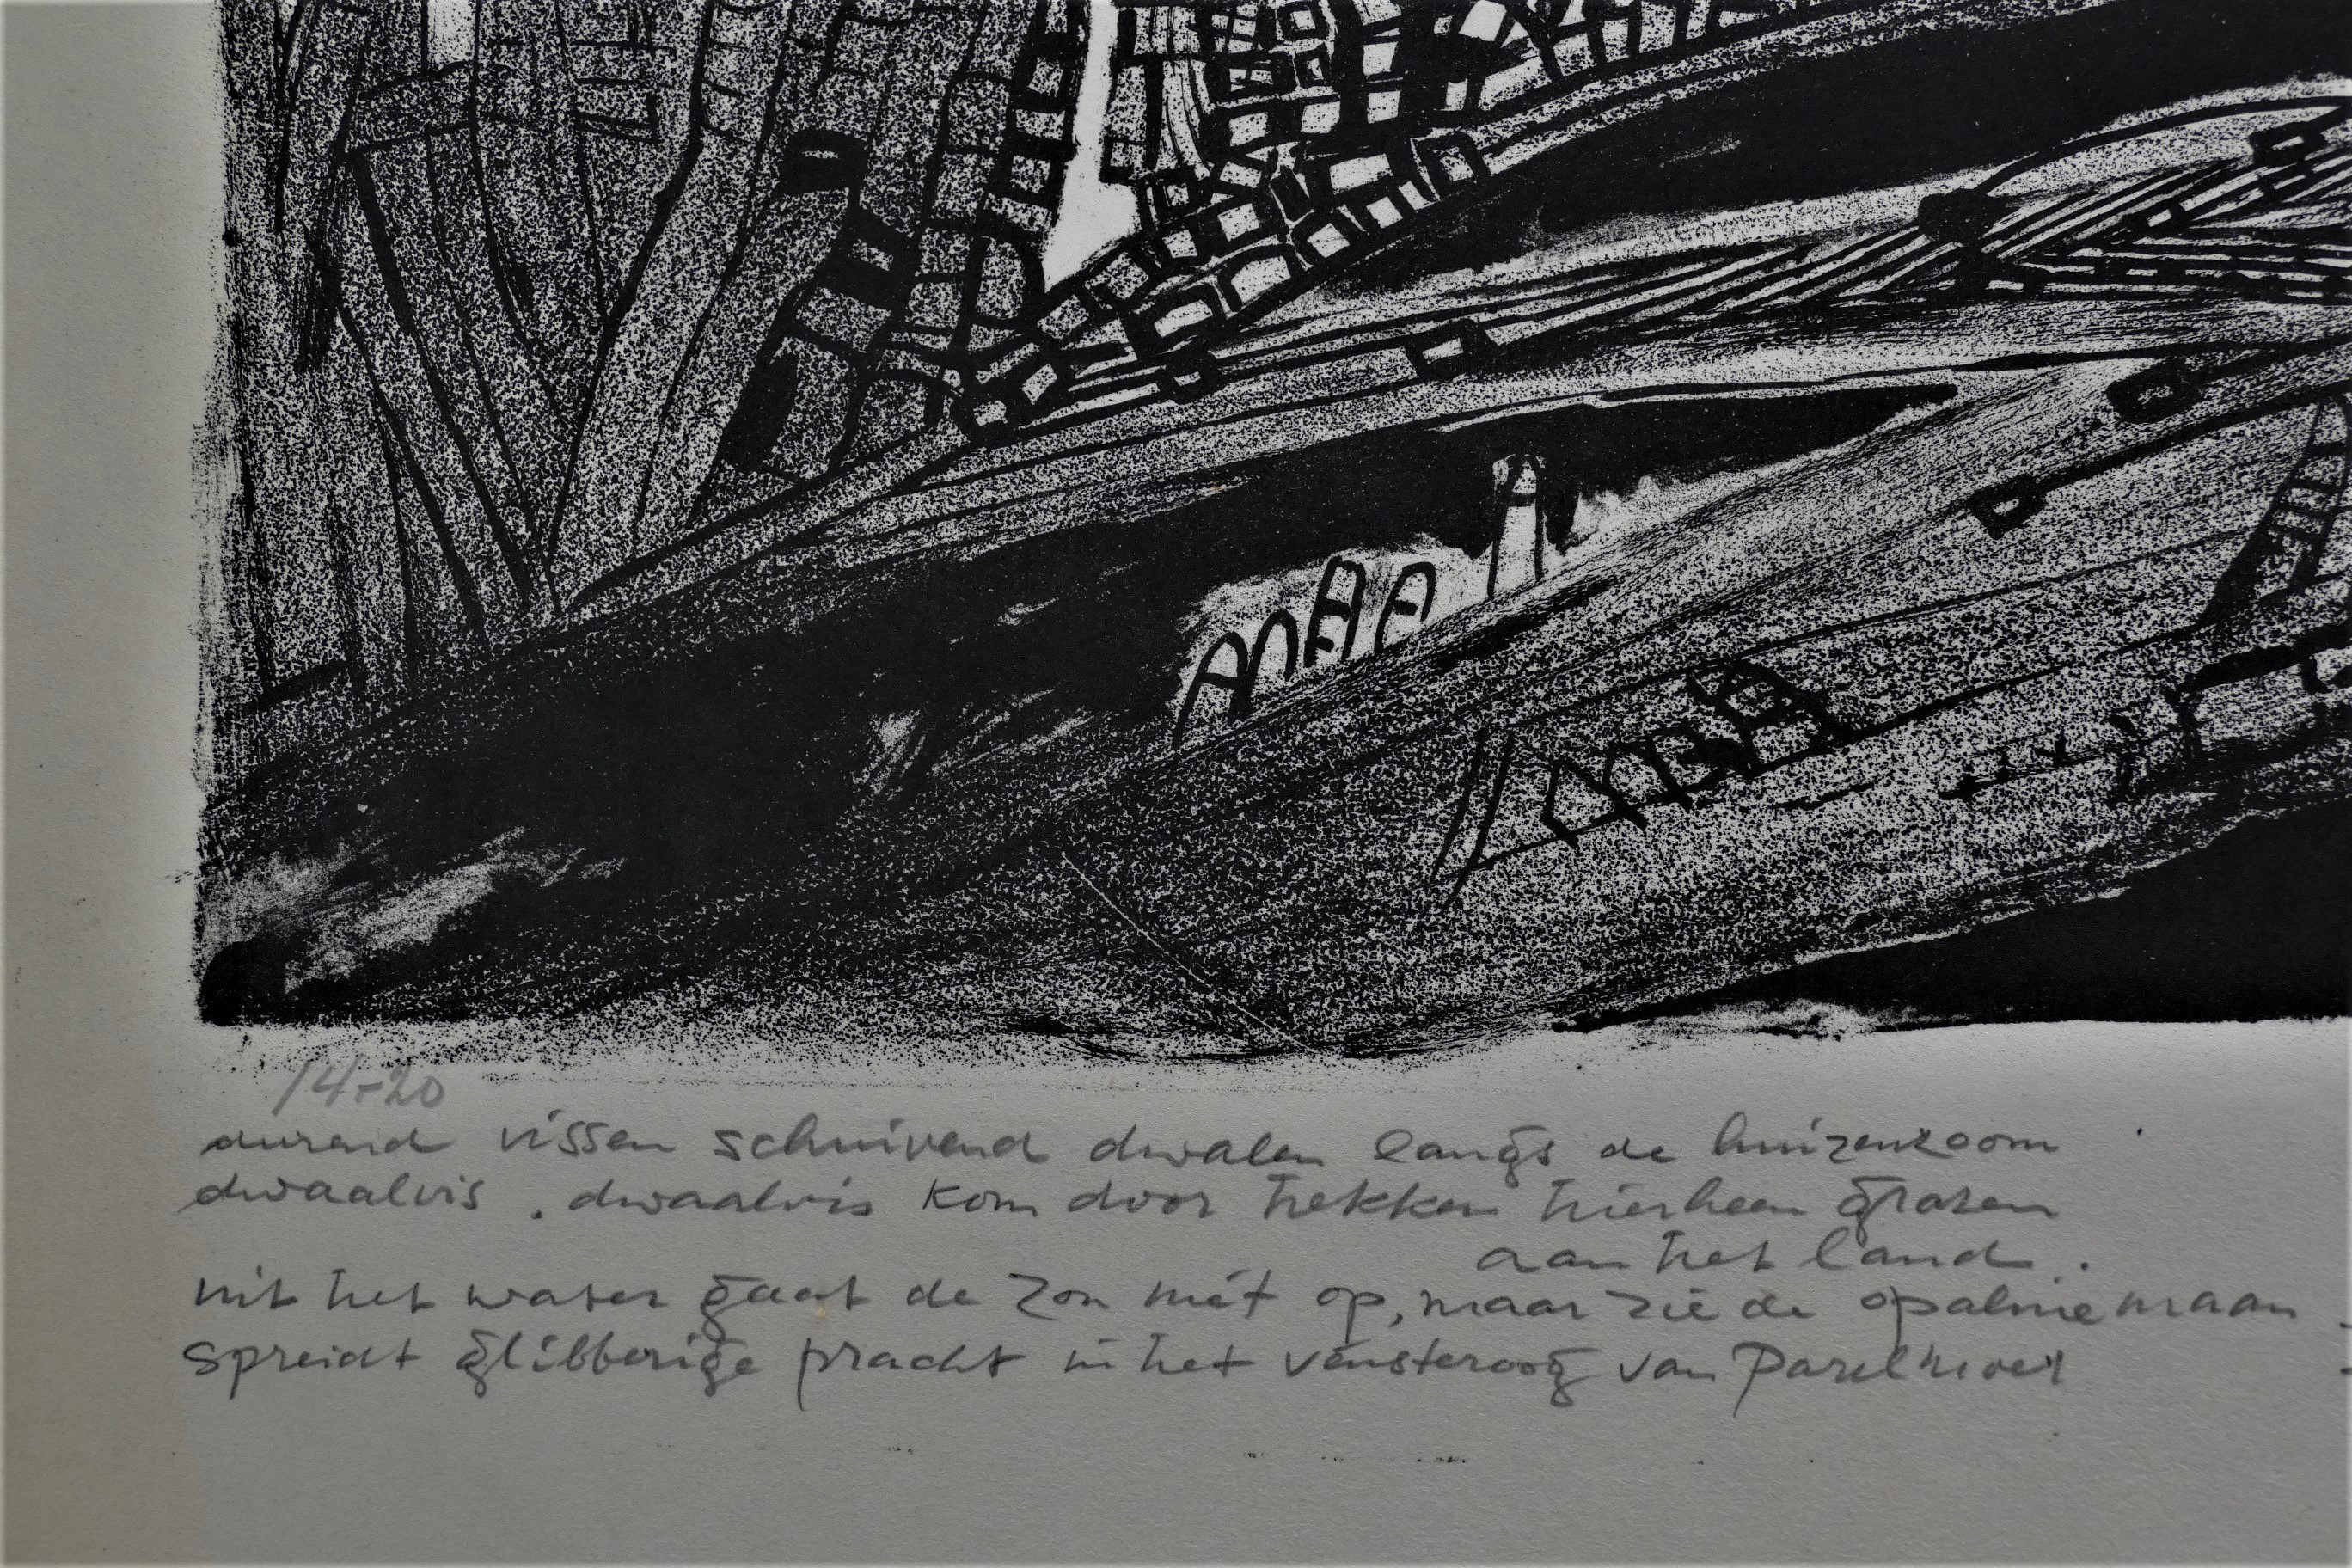 14-20
durend vissen schuivend dwalen langs de huizenzoom
dwaalvis . dwaalvis kom door trekken hierheen grazen
aan het land .
uit het water gaat de zon niet op, maar zie de opaline maan
spreidt glibberige pracht in het vensteroog van Parelmoer